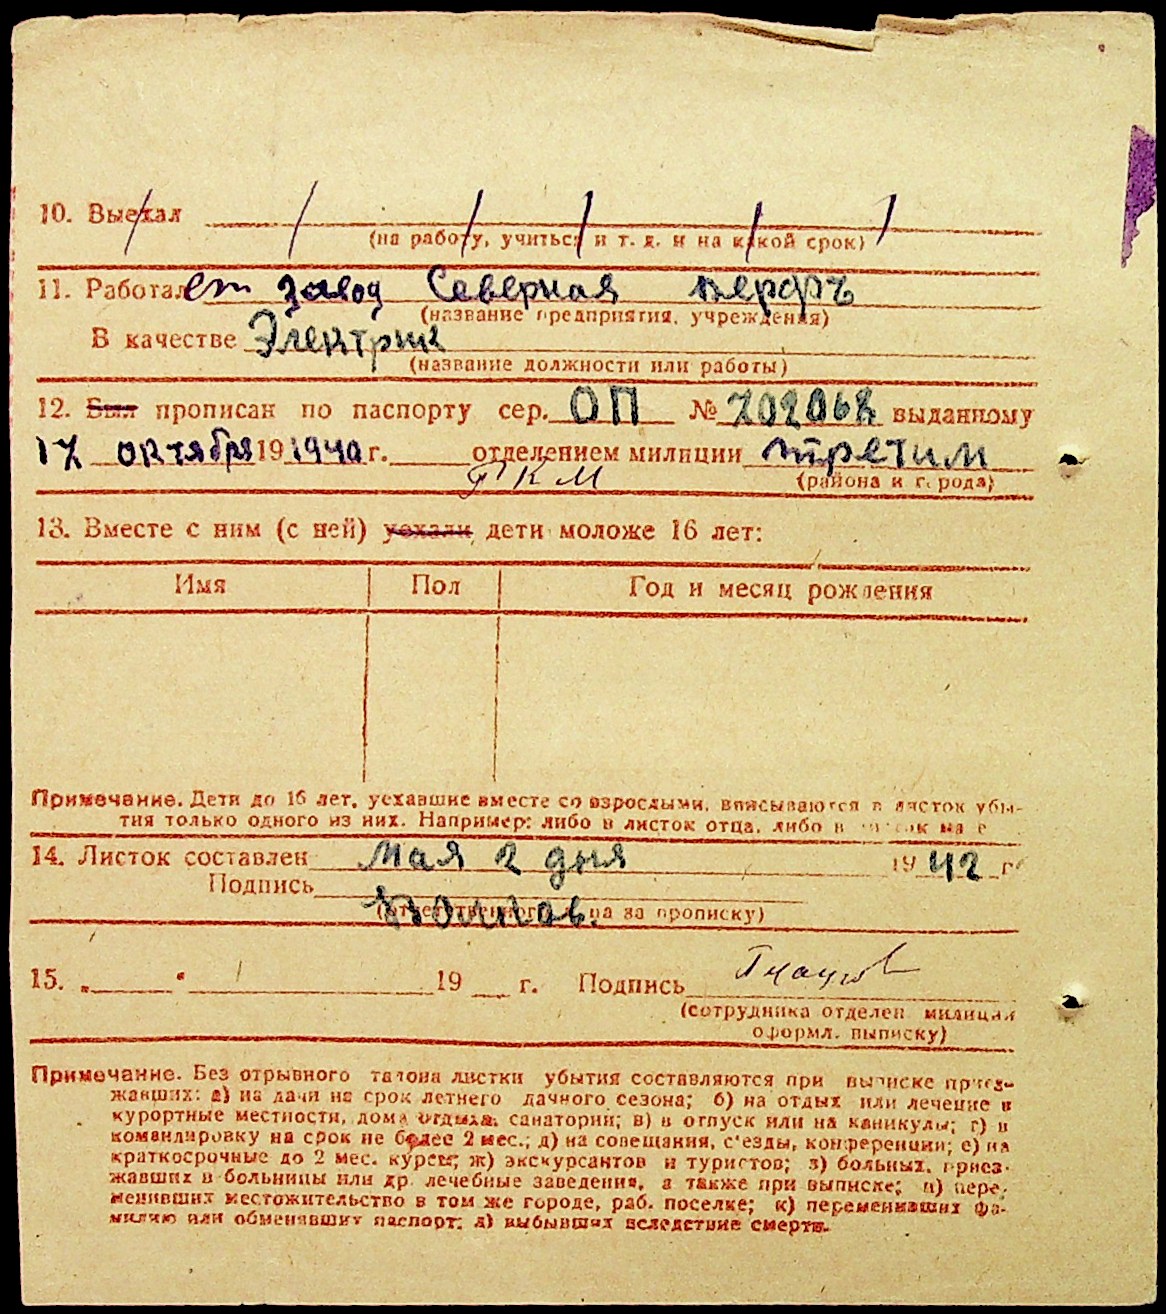 10. Выехал
(на работу, учиться и т. д. и на какой срок)
11. Работает завод Северная верфъ
(название предприятия, учреждения)
В качестве Электрик
(название должности или работы)
12. Был прописан по паспорту сер. ОП № 702068 выданному
17 октября 19 1940 г. отделением милиции третим
РКМ (района и города)
13. Вместе с ним (с ней) уехали дети моложе 16 лет:
Имя Пол Год и месяц рождения
Примечание. Дети до 16 лет, уехавшие вместе со взрослыми, вписываются в листок убы-
тия только одного из них. Например: либо в листок отца, либо в
14. Листок составлен мая 2 дня 19 42 г.
Подпись
(ответственного лица за прописку)
15. „ " 19 г. Подпись
(сотрудника отделен. милиции
оформл. выписку)
Примечание. Без отрывного талона листки убытия составляются при выписке приез-
жавших: а) на дачи на срок летнего дачного сезона; б) на отдых или лечение в
курортные местности, дома отдыха, санатории; в) в отпуск или на каникулы; г) в
командировку на срок не более 2 мес.; д) на совещания, с'езды, конференции; е) на
краткосрочные до 2 мес. курсы; ж) экскурсантов и туристов; з) больных, приез-
жавших в больницы или др. лечебные заведения, а также при выписке; и) пере-
менивших местожительство в том же городе, раб. поселке; к) переменивших фа-
милию или обменявших паспорт; л) выбывших вследствие смерти.